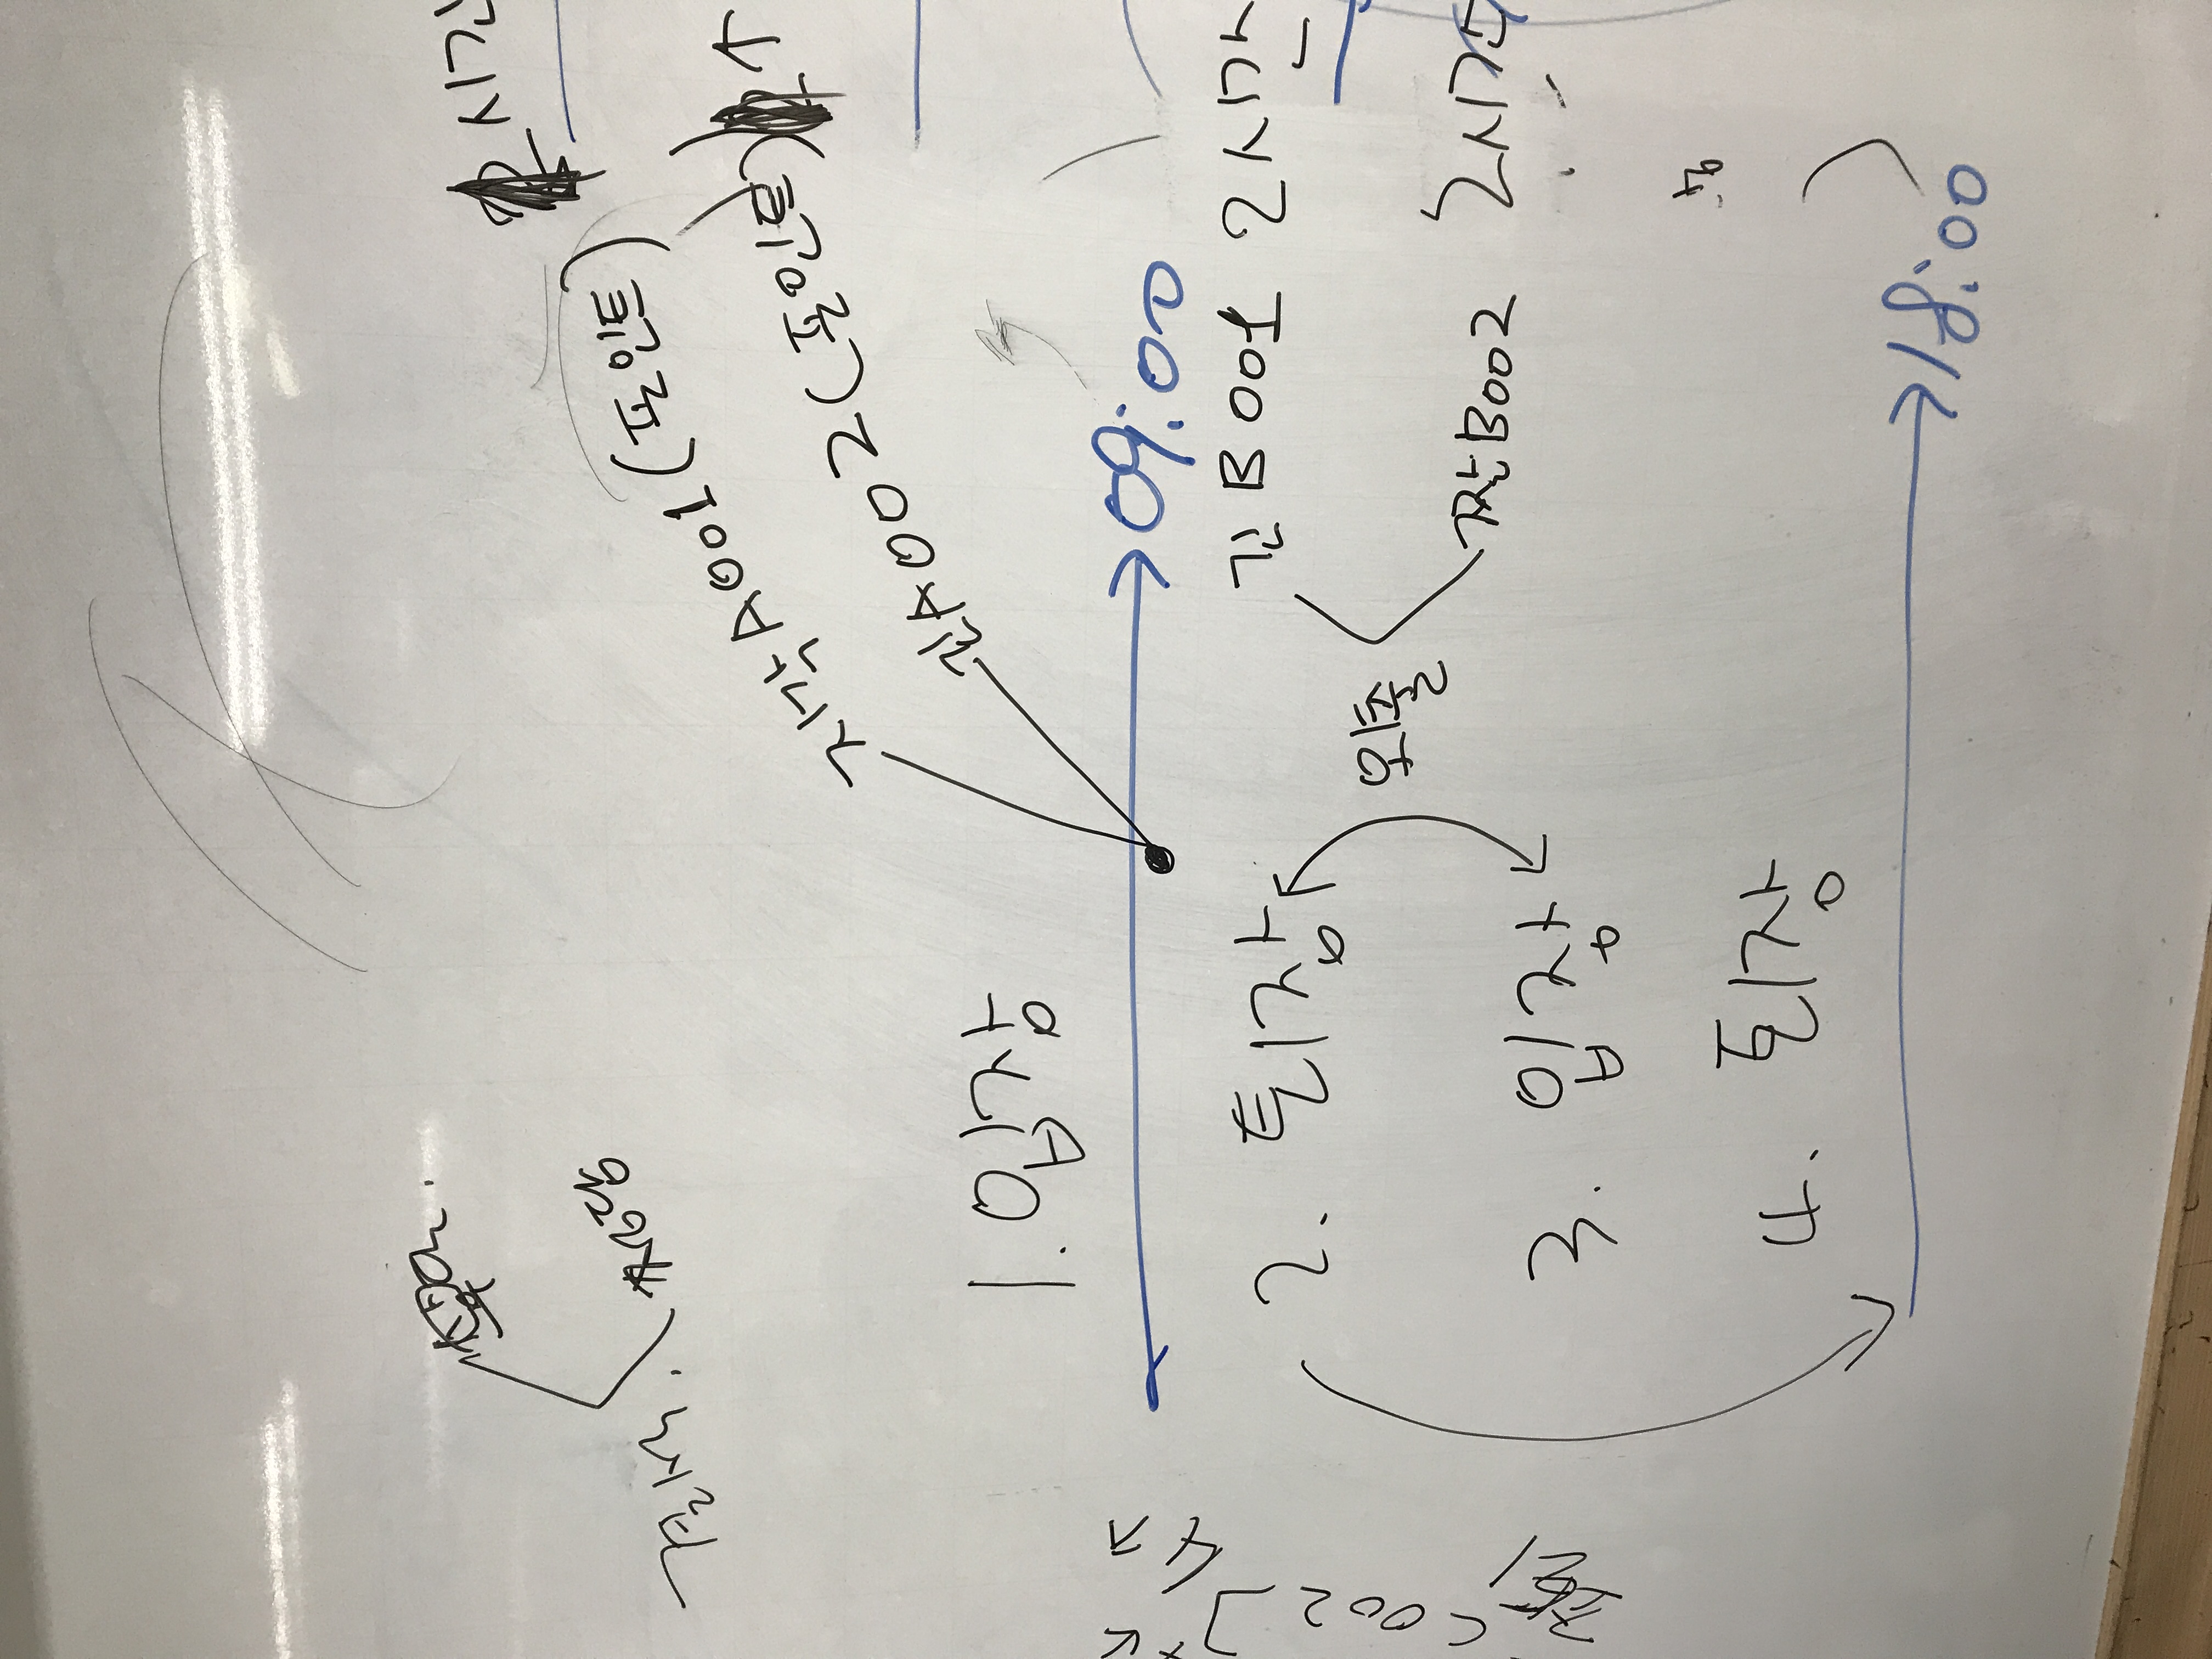 결석.
차감
시간
지각A001(포인트)
긴A002(포인트) ↑
1. 입장
09:00
2. 퇴장
긴B001 2시간
외출
짧B002 2시간
3. 입장
4. 퇴장
18:00
C002
4↑